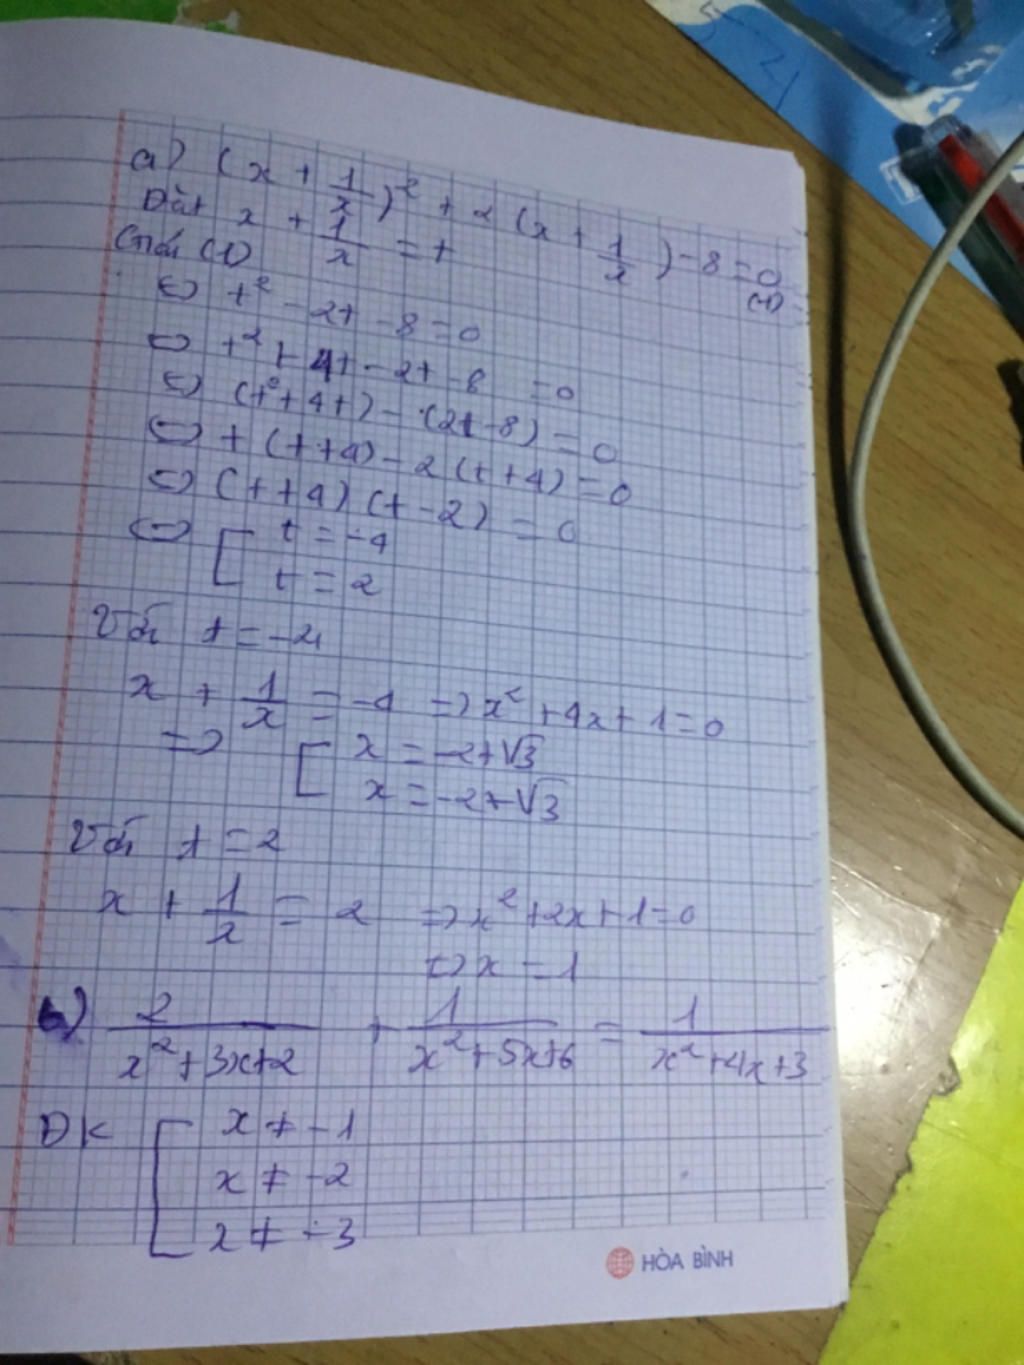 a) (x + 1/x)² + 2(x + 1/x) - 8 = 0
Đặt x + 1/x = t (1)
Giải (1)
<=> t² - 2t - 8 = 0
<=> t² + 4t - 2t - 8 = 0
<=> (t² + 4t) - (2t - 8) = 0
<=> t(t+4) - 2(t+4) = 0
<=> (t+4)(t-2) = 0
<=> [ t = -4
t = 2
Với t = -4
x + 1/x = -4 => x² + 4x + 1 = 0
=> [ x = -2+√3
x = -2+√3
Với t = 2
x + 1/x = 2 => x² + 2x + 1 = 0
<=> x = 1
b) 2/(x²+3x+2) + 1/(x²+5x+6) = 1/(x²+4x+3)
ĐK [ x ≠ -1
x ≠ -2
x ≠ -3
HÒA BÌNH